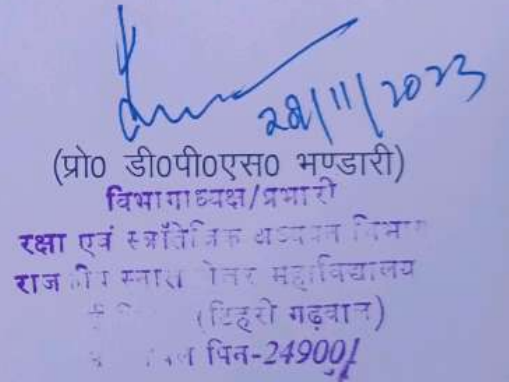 28/11/2023
(प्रो0 डी0पी0एस0 भण्डारी)
विभागाध्यक्ष/प्रभारी
रक्षा एवं स्त्रॉतेजिक अध्ययन विभाग
महाविद्यालय
(टिहरी गढ़वाल)
पिन-249001